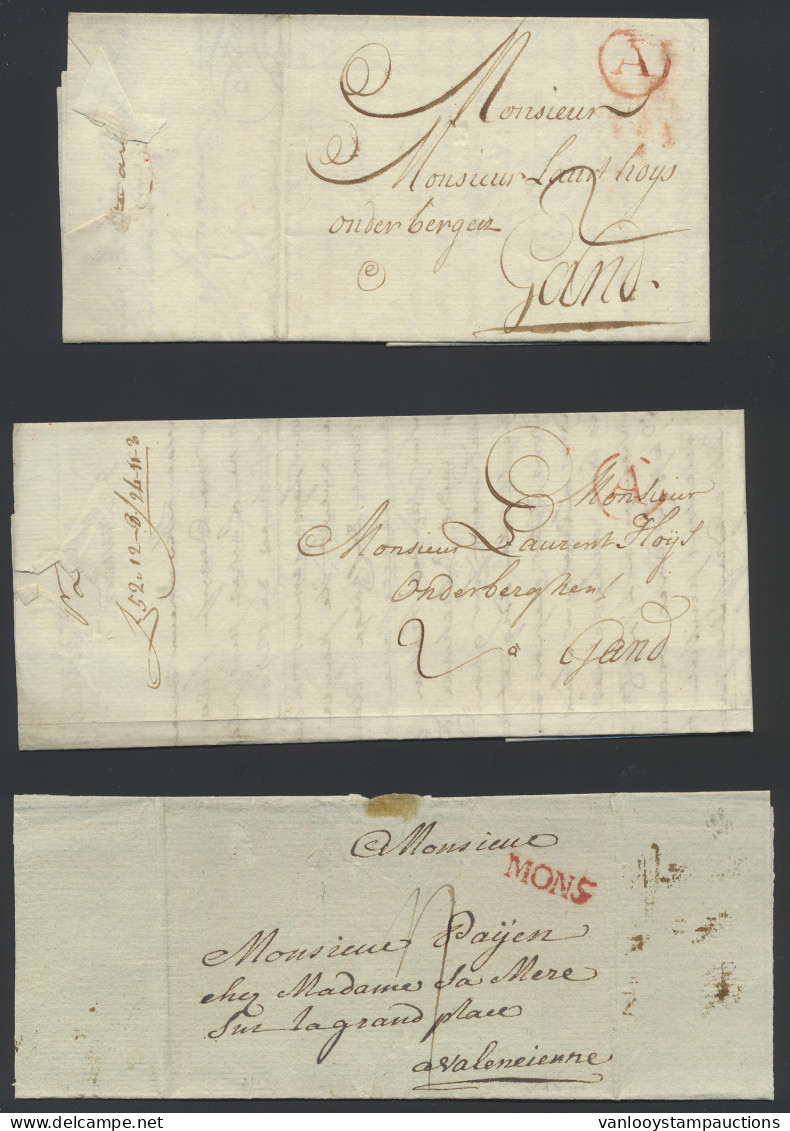 A
Monsieur
Monsieur Laurt hoys
onderbergen
2
Gand.
£52„12-8/94-11-3
A
Monsieur
Monsieur Laurent Hoÿs
Onderberghen
2 a Gand
Monsieur
MONS
Monsieur Païjen
chez Madame Sa Mere
Sur la grand place
a valencienne
delcampe.net
vanlooystampauctions